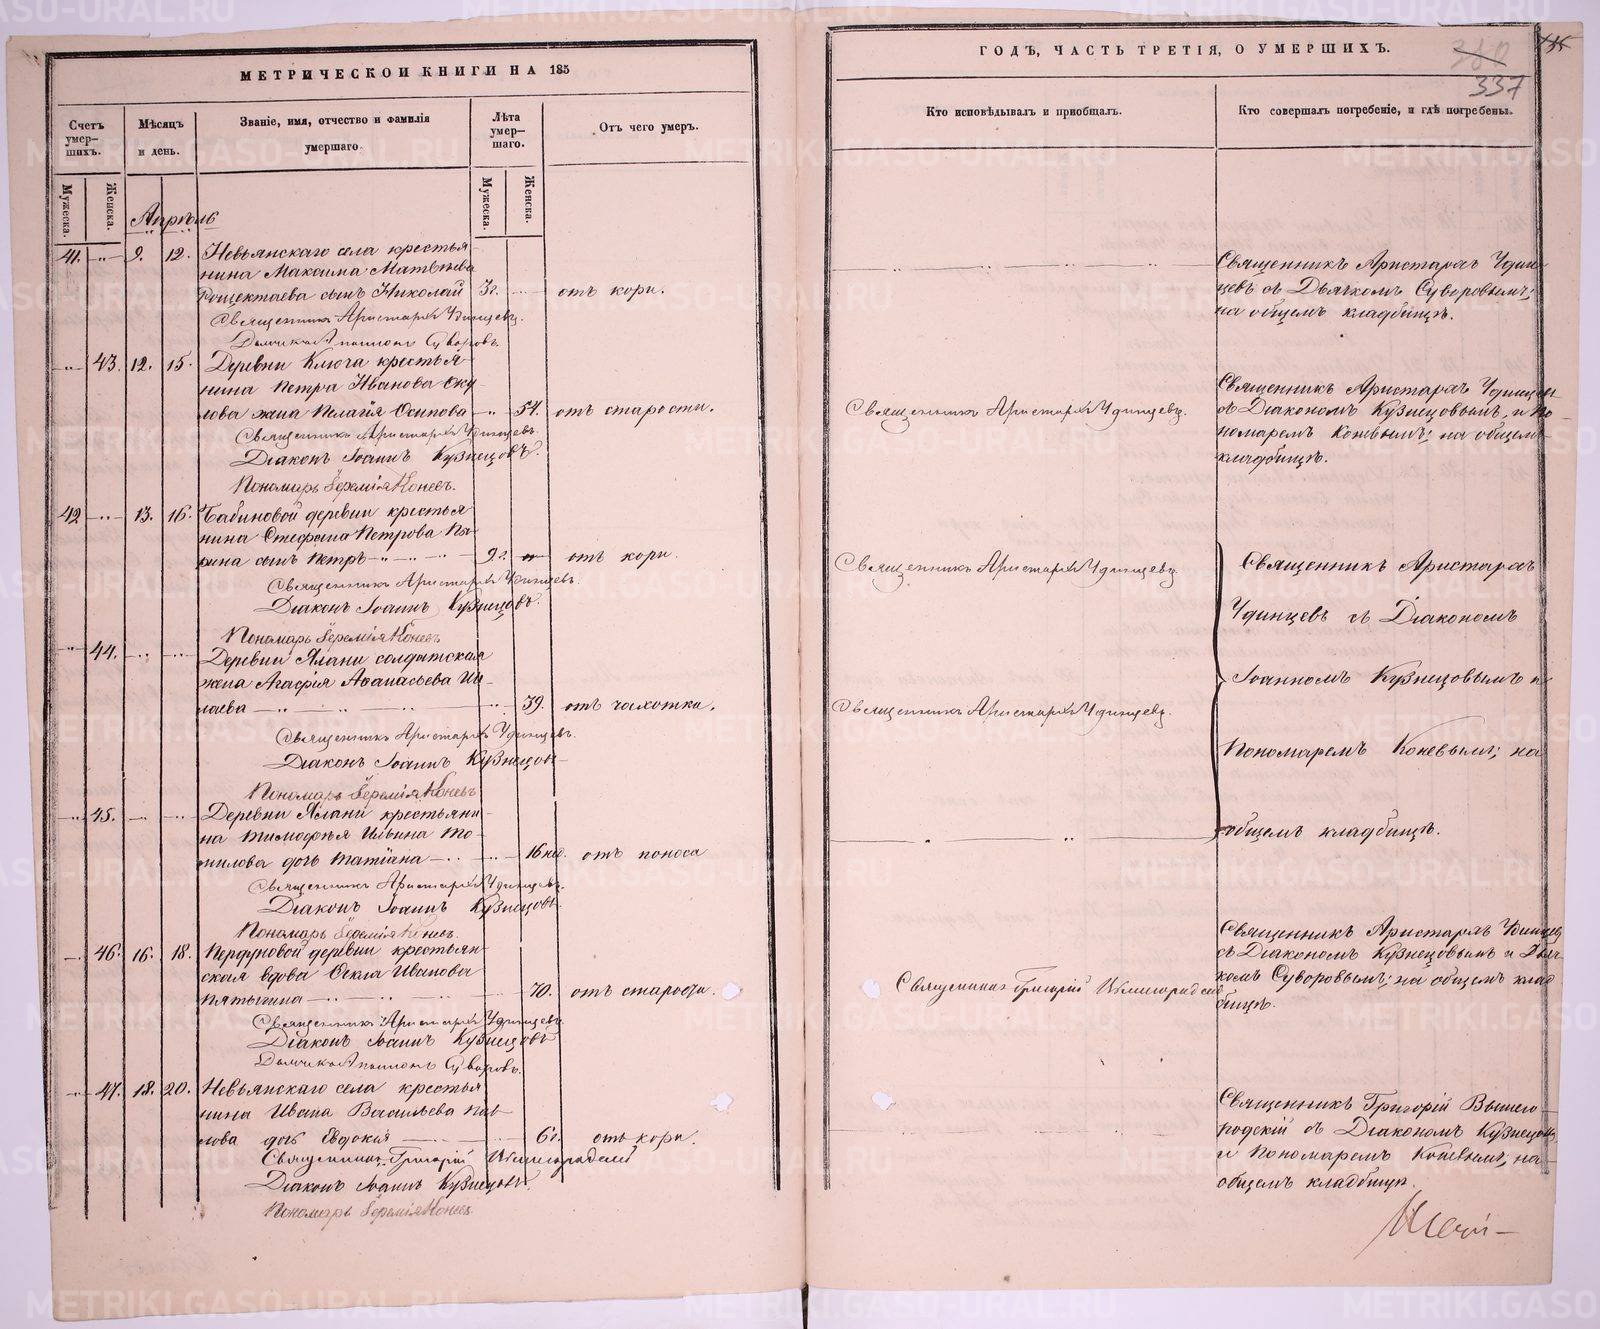 МЕТРИЧЕСКОЙ КНИГИ НА 185
Счетъ умершихъ.
Мѣсяцъ и день.
Званіе, имя, отчество и фамилія умершаго.
Лѣта умершаго.
Отъ чего умеръ.
Мужеска.
Женска.
Мужеска.
Женска.
Апрѣль
41. 9. 12. Невьянскаго села крестья-
нина Максима Матвѣева
Рощектаева сынъ Николай 3 г. отъ кори.
Священникъ Аристархъ Удинцевъ.
Дьячекъ Суворовъ.
43. 12. 15. Деревни Ключа крестья-
нина Петра Иванова Оку-
лова жена Пелагія Осипова 54. отъ старости.
Священникъ Аристархъ Удинцевъ.
Діаконъ Іоаннъ Кузнецовъ.
Пономарь Іеремія Коневъ.
42 13. 16. Бабиновой деревни крестья
нина Стефана Петрова Пы-
рина сынъ Петръ 9 г. отъ кори.
Священникъ Аристархъ Удинцевъ.
Діаконъ Іоаннъ Кузнецовъ.
Пономарь Іеремія Коневъ
44. Деревни Ялани солдатская
жена Агафія Аѳанасьева
39. отъ чахотки.
Священникъ Аристархъ Удинцевъ.
Діаконъ Іоаннъ Кузнецовъ
Пономарь Іеремія Коневъ
45. Деревни Ялани крестьяни-
на Тимофѣя Ильина То-
милова дочь Татіана 16 нед. отъ поноса
Священникъ Аристархъ Удинцевъ.
Діаконъ Іоаннъ Кузнецовъ
Пономарь Іеремія Коневъ.
46. 16. 18. Пердуновой деревни крестьян-
ская вдова Ѳекла Иванова
Пятыгина 70. отъ старости.
Священникъ Аристархъ Удинцевъ
Діаконъ Іоаннъ Кузнецовъ
Дьячекъ Суворовъ.
47. 18. 20. Невьянскаго села крестья
нина Ивана Васильева
дочь Евдокія 6 г. отъ кори.
Священникъ Григорій Вышегородскій
Діаконъ Іоаннъ Кузнецовъ.
Пономарь Іеремія Коневъ
ГОДЪ, ЧАСТЬ ТРЕТІЯ, О УМЕРШИХЪ.
337
Кто исповѣдывалъ и пріобщалъ.
Кто совершалъ погребеніе, и гдѣ погребены.
Священникъ Аристархъ Удин-
цевъ съ Дьячкомъ Суворовымъ;
на общемъ кладбищѣ.
Священникъ Аристархъ Удинцевъ.
Священникъ Аристархъ Удинцевъ
съ Діакономъ Кузнецовымъ, и По-
номаремъ Коневымъ; на общемъ
кладбищѣ.
Священникъ Аристархъ Удинцевъ.
Священникъ Аристархъ
Удинцевъ съ Діакономъ
Іоанномъ Кузнецовымъ и
Священникъ Аристархъ Удинцевъ.
Пономаремъ Коневымъ; на
общемъ кладбищѣ.
Священникъ Григорій Вышегородскій
Священникъ Аристархъ Удинцевъ
съ Діакономъ Кузнецовымъ и Дьяч-
комъ Суворовымъ; на общемъ клад
бищѣ.
Священникъ Григорій Вышего-
родскій съ Діакономъ Кузнецовымъ
и Пономаремъ Коневымъ, на
общемъ кладбищѣ.
METRIKI.GASO-URAL.RU